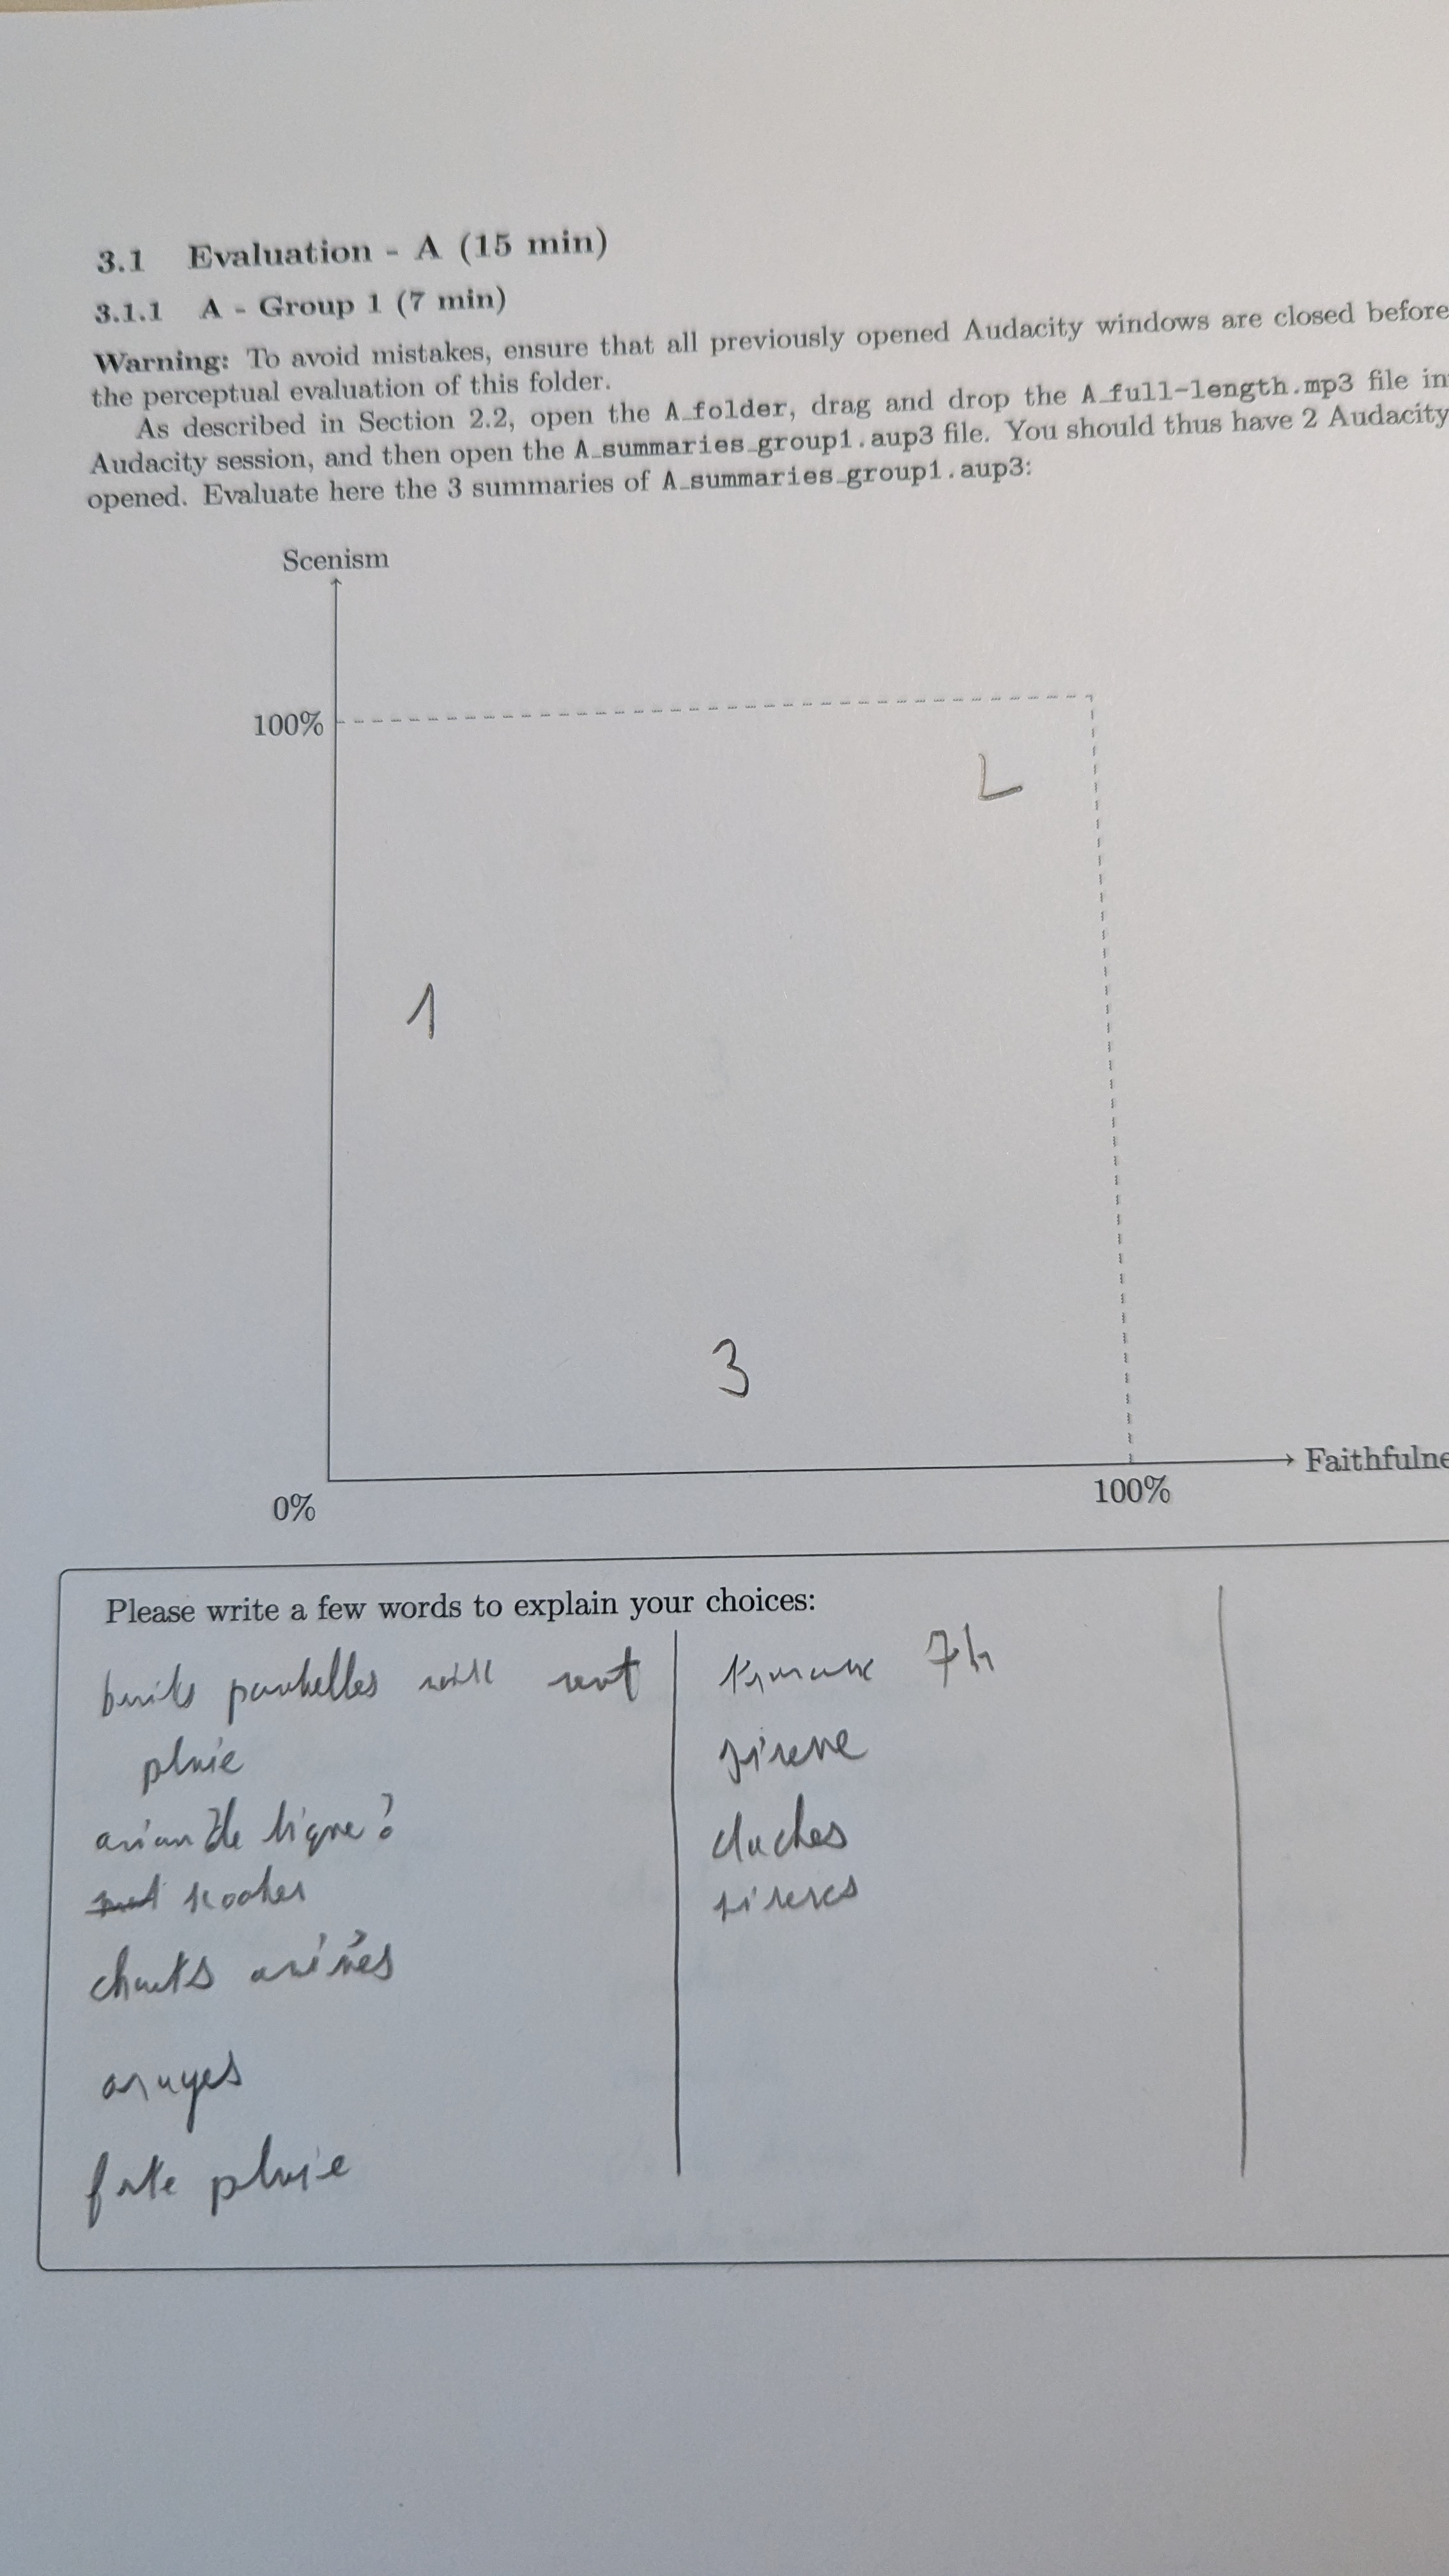 3.1 Evaluation - A (15 min)
3.1.1 A - Group 1 (7 min)
Warning: To avoid mistakes, ensure that all previously opened Audacity windows are closed before
the perceptual evaluation of this folder.
As described in Section 2.2, open the A_folder, drag and drop the A_full-length.mp3 file in
Audacity session, and then open the A_summaries_group1.aup3 file. You should thus have 2 Audacity
opened. Evaluate here the 3 summaries of A_summaries_group1.aup3:
Scenism
100%
L
1
3
Faithfulne
0%
100%
Please write a few words to explain your choices:
bruits poubelles vent
pluie
avion de ligne?
scooter
chants
orages
forte pluie
7h
sirene
cloches
sirenes